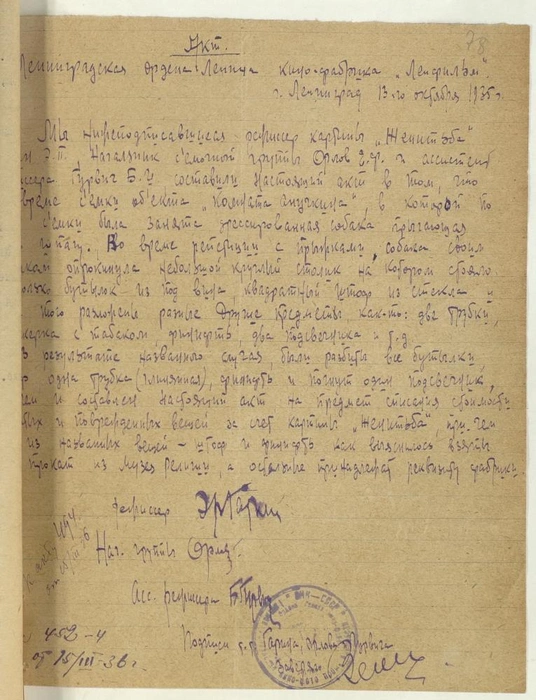 Акт.
78
Ленинградская ордена Ленина кино-фабрика „Ленфильм".
г. Ленинград 13-го октября 1935 г.
Мы нижеподписавшиеся режиссер картины „Женитьба"
Э.П., Начальник съемочной группы Орлов Е.Ф. и ассистент
Гурвич Б.У. составили настоящий акт в том, что
время съемки объекта „Комната анучкина", в которой по
съемки была занята дрессированная собака прыгающая
Во время репетиции с прыжками, собака своим
опрокинула небольшой круглый столик на котором стояло
бутылок из под вина, квадратный штоф из стекла и
того разложены разные другие предметы как-то: две трубки,
с табаком фидибус, два подсвечника и т.д.
В результате названного случая, были разбиты все бутылки,
одна трубка (глиняная), и погнут один подсвечник,
и составлен настоящий акт на предмет списания стоимости
и поврежденных вещей за счет картины „Женитьба", при чем
из названных вещей – штоф и как выяснилось взяты
прокат из музея Религии, а остальные принадлежат реквизиту фабрики
режиссер Эр Гарин
Нач. группы Орлов
Асс. режиссера
Подписи т.т. Гарина, Орлова, Гурвича
452-4
от 15/III-36 г.